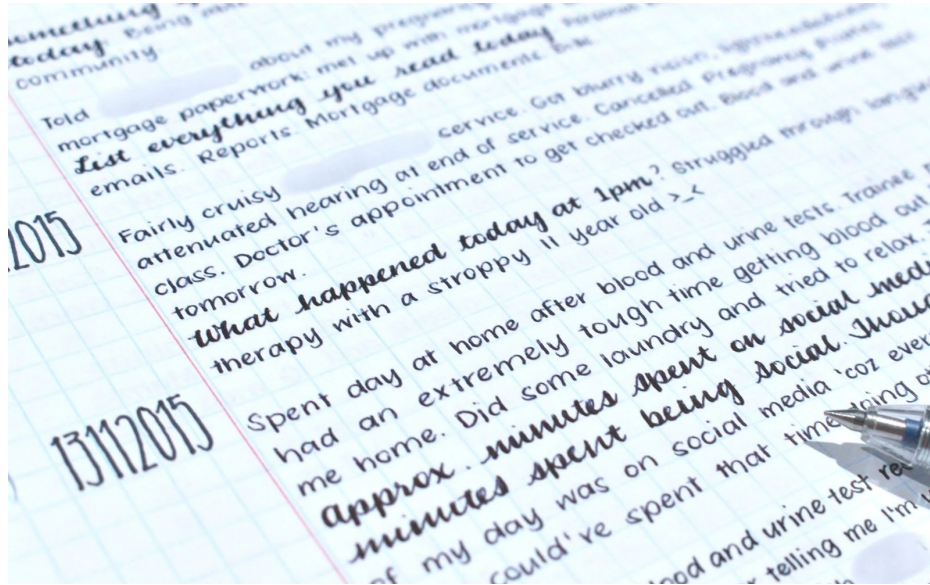 something
today. Being
community.
Told about my pregnancy
mortgage paperwork: met up with mortgage
List everything you read today. Personal
emails. Reports. Mortgage documents.
Fairly cruisy service. Got blurry vision, lightheadedness
attenuated hearing at end of service. Cancelled Pregnancy Pilates
class. Doctor's appointment to get checked out. Blood and urine test
tomorrow.
2015
What happened today at 1pm? Struggled through language
therapy with a stroppy 11 year old >_<
13112015
Spent day at home after blood and urine tests. Trainee
had an extremely tough time getting blood out
me home. Did some laundry and tried to relax.
approx. minutes spent on social media
minutes spent being social.
of my day was on social media 'coz
could've spent that time doing
blood and urine test
telling me I'm